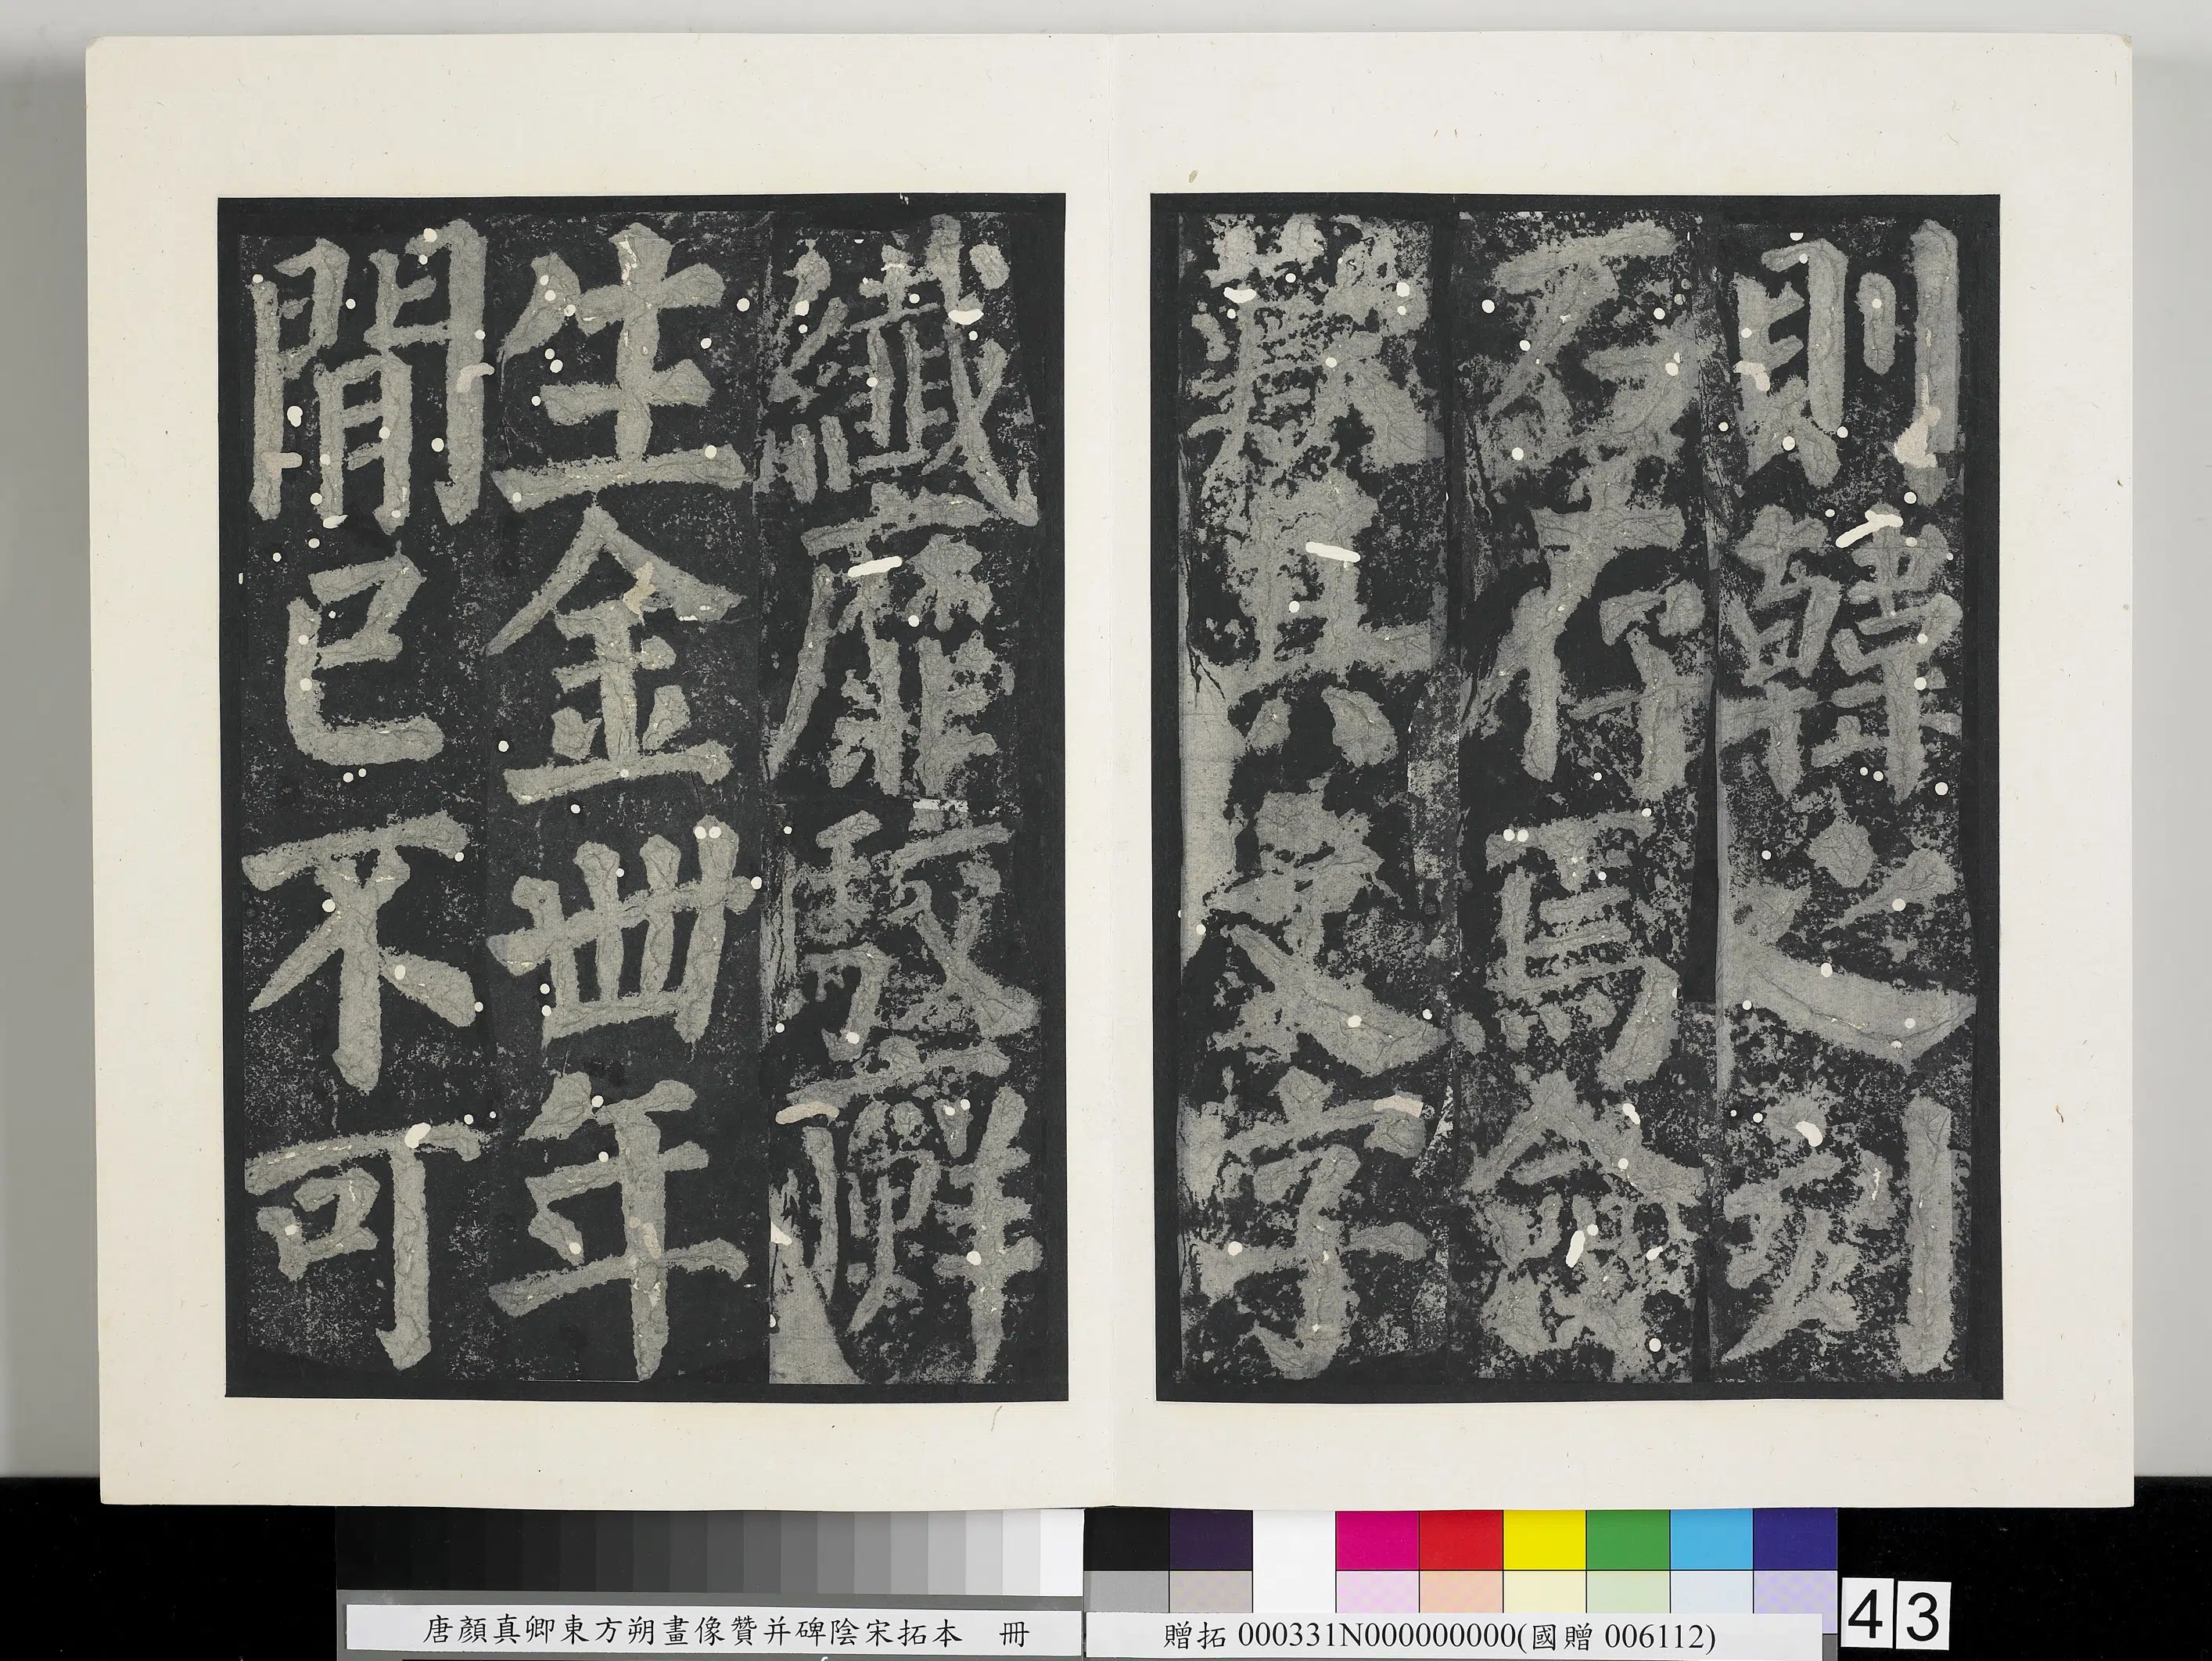 則韓之刻
石存焉僉
歎其文字
纖靡駮廯
生金卌年
閒已不可
唐顏真卿東方朔畫像贊并碑陰宋拓本 冊
贈拓 000331N000000000(國贈 006112)
43